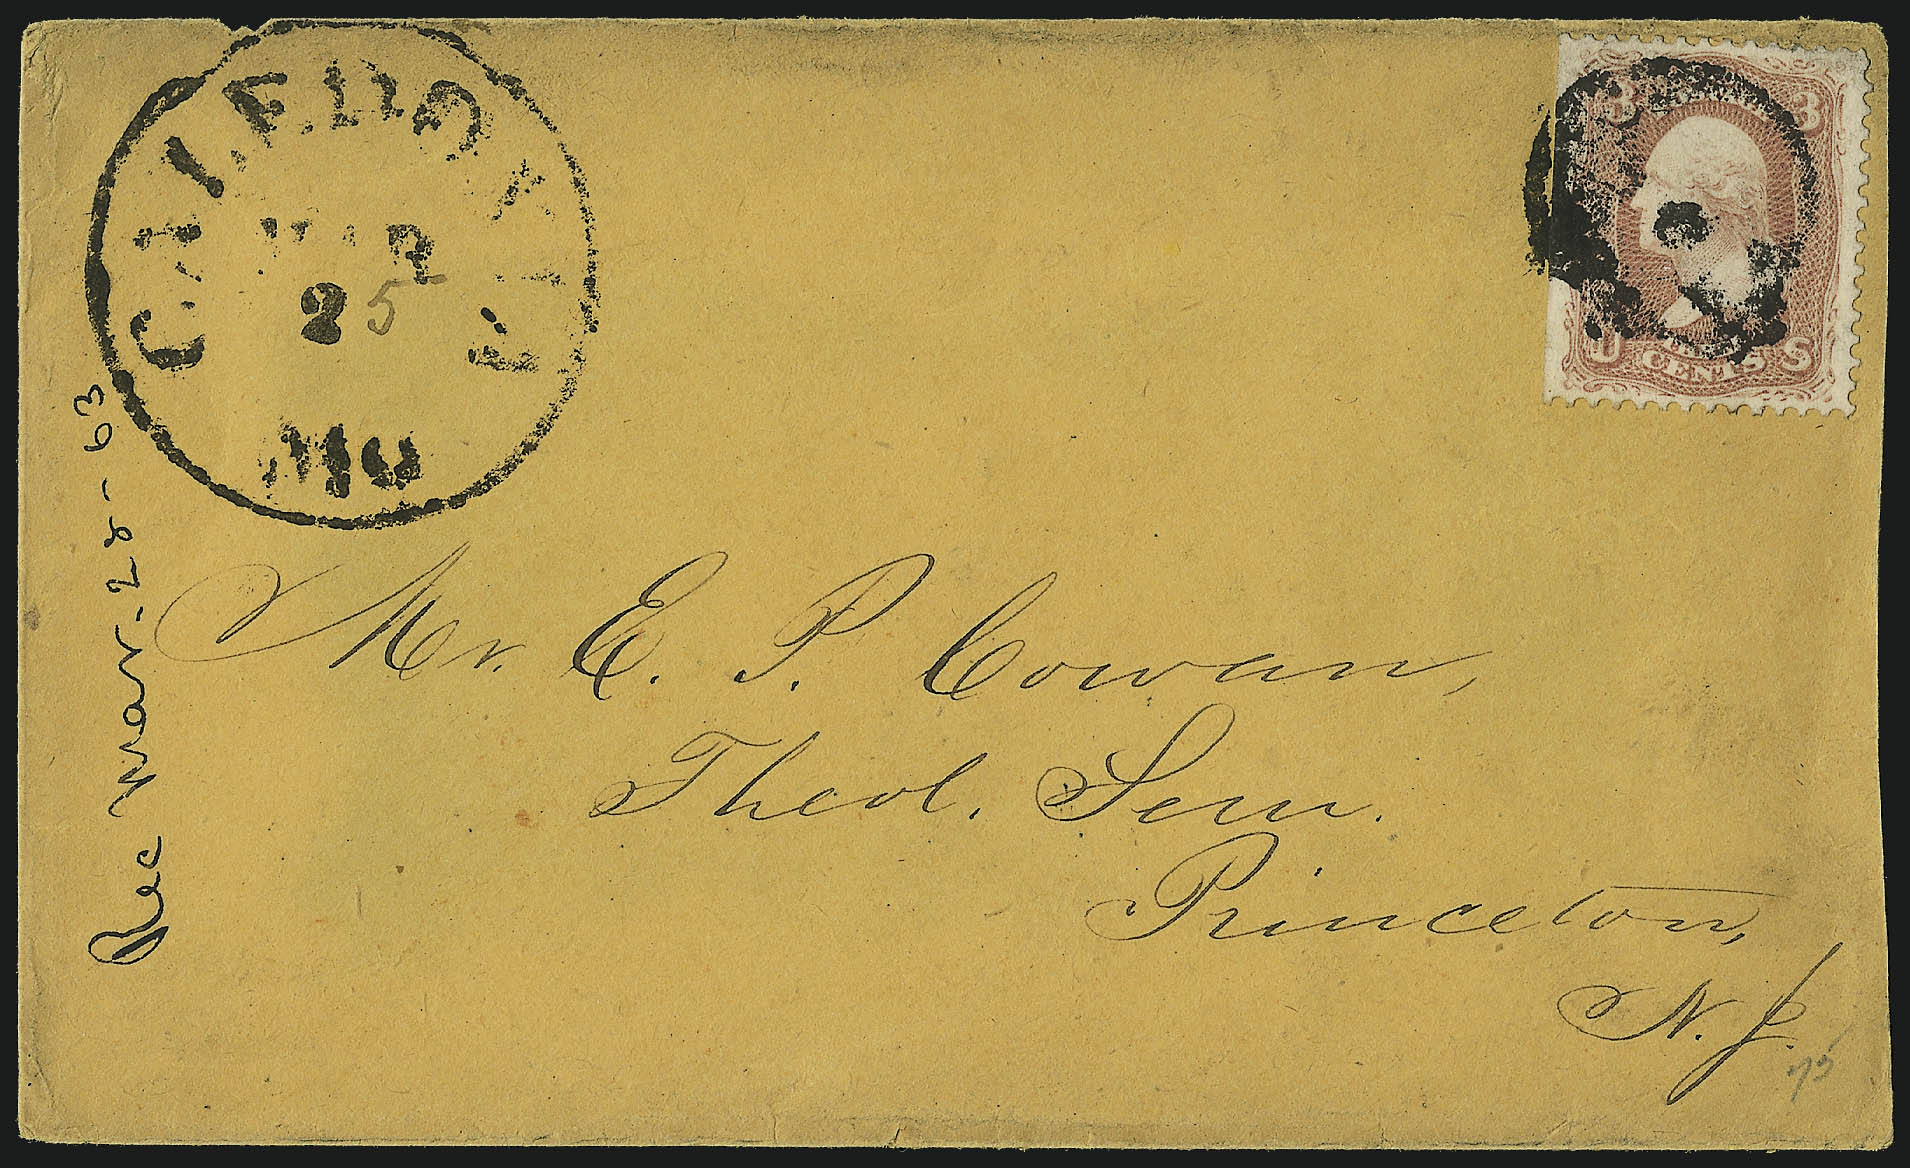 CALEDONIA
MAR
25
MO
3 3
U S
THREE
CENTS
Rec Mar. 28 - 63
Mr. E. P. Cowan,
Theol. Sem.
Princeton,
N. J.
75